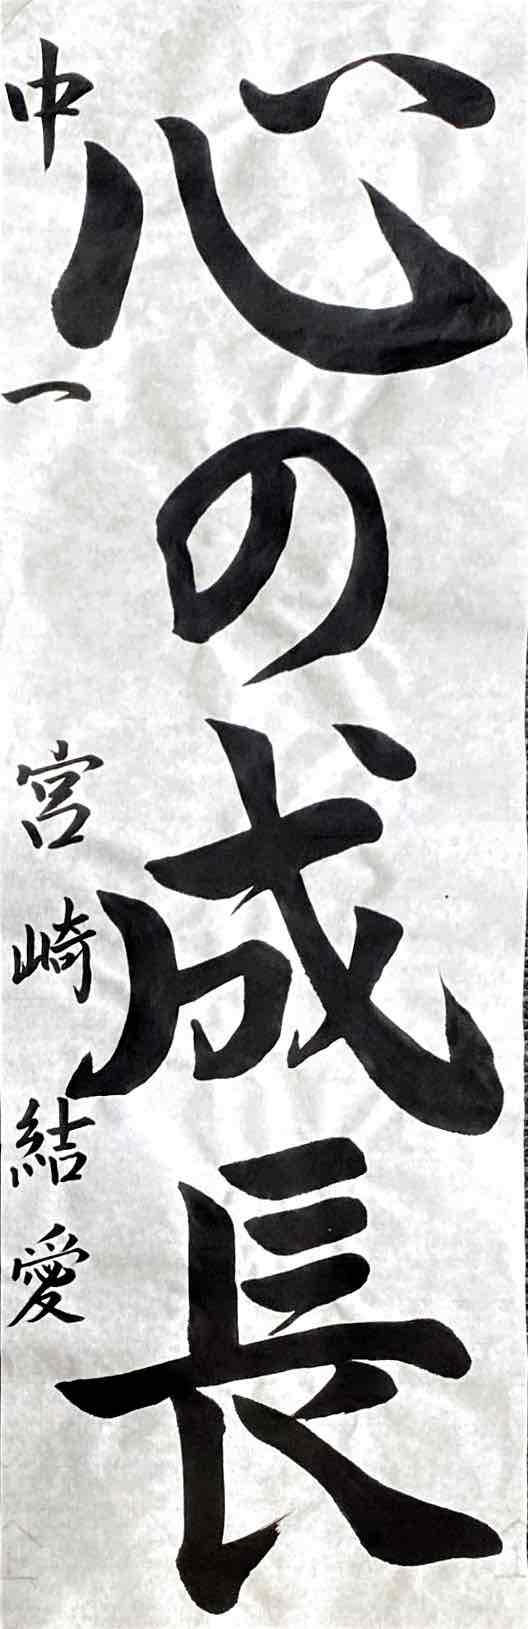 心の成長
中一 宮崎結愛